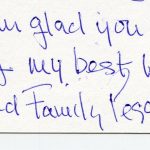 m glad you
my best
d Family